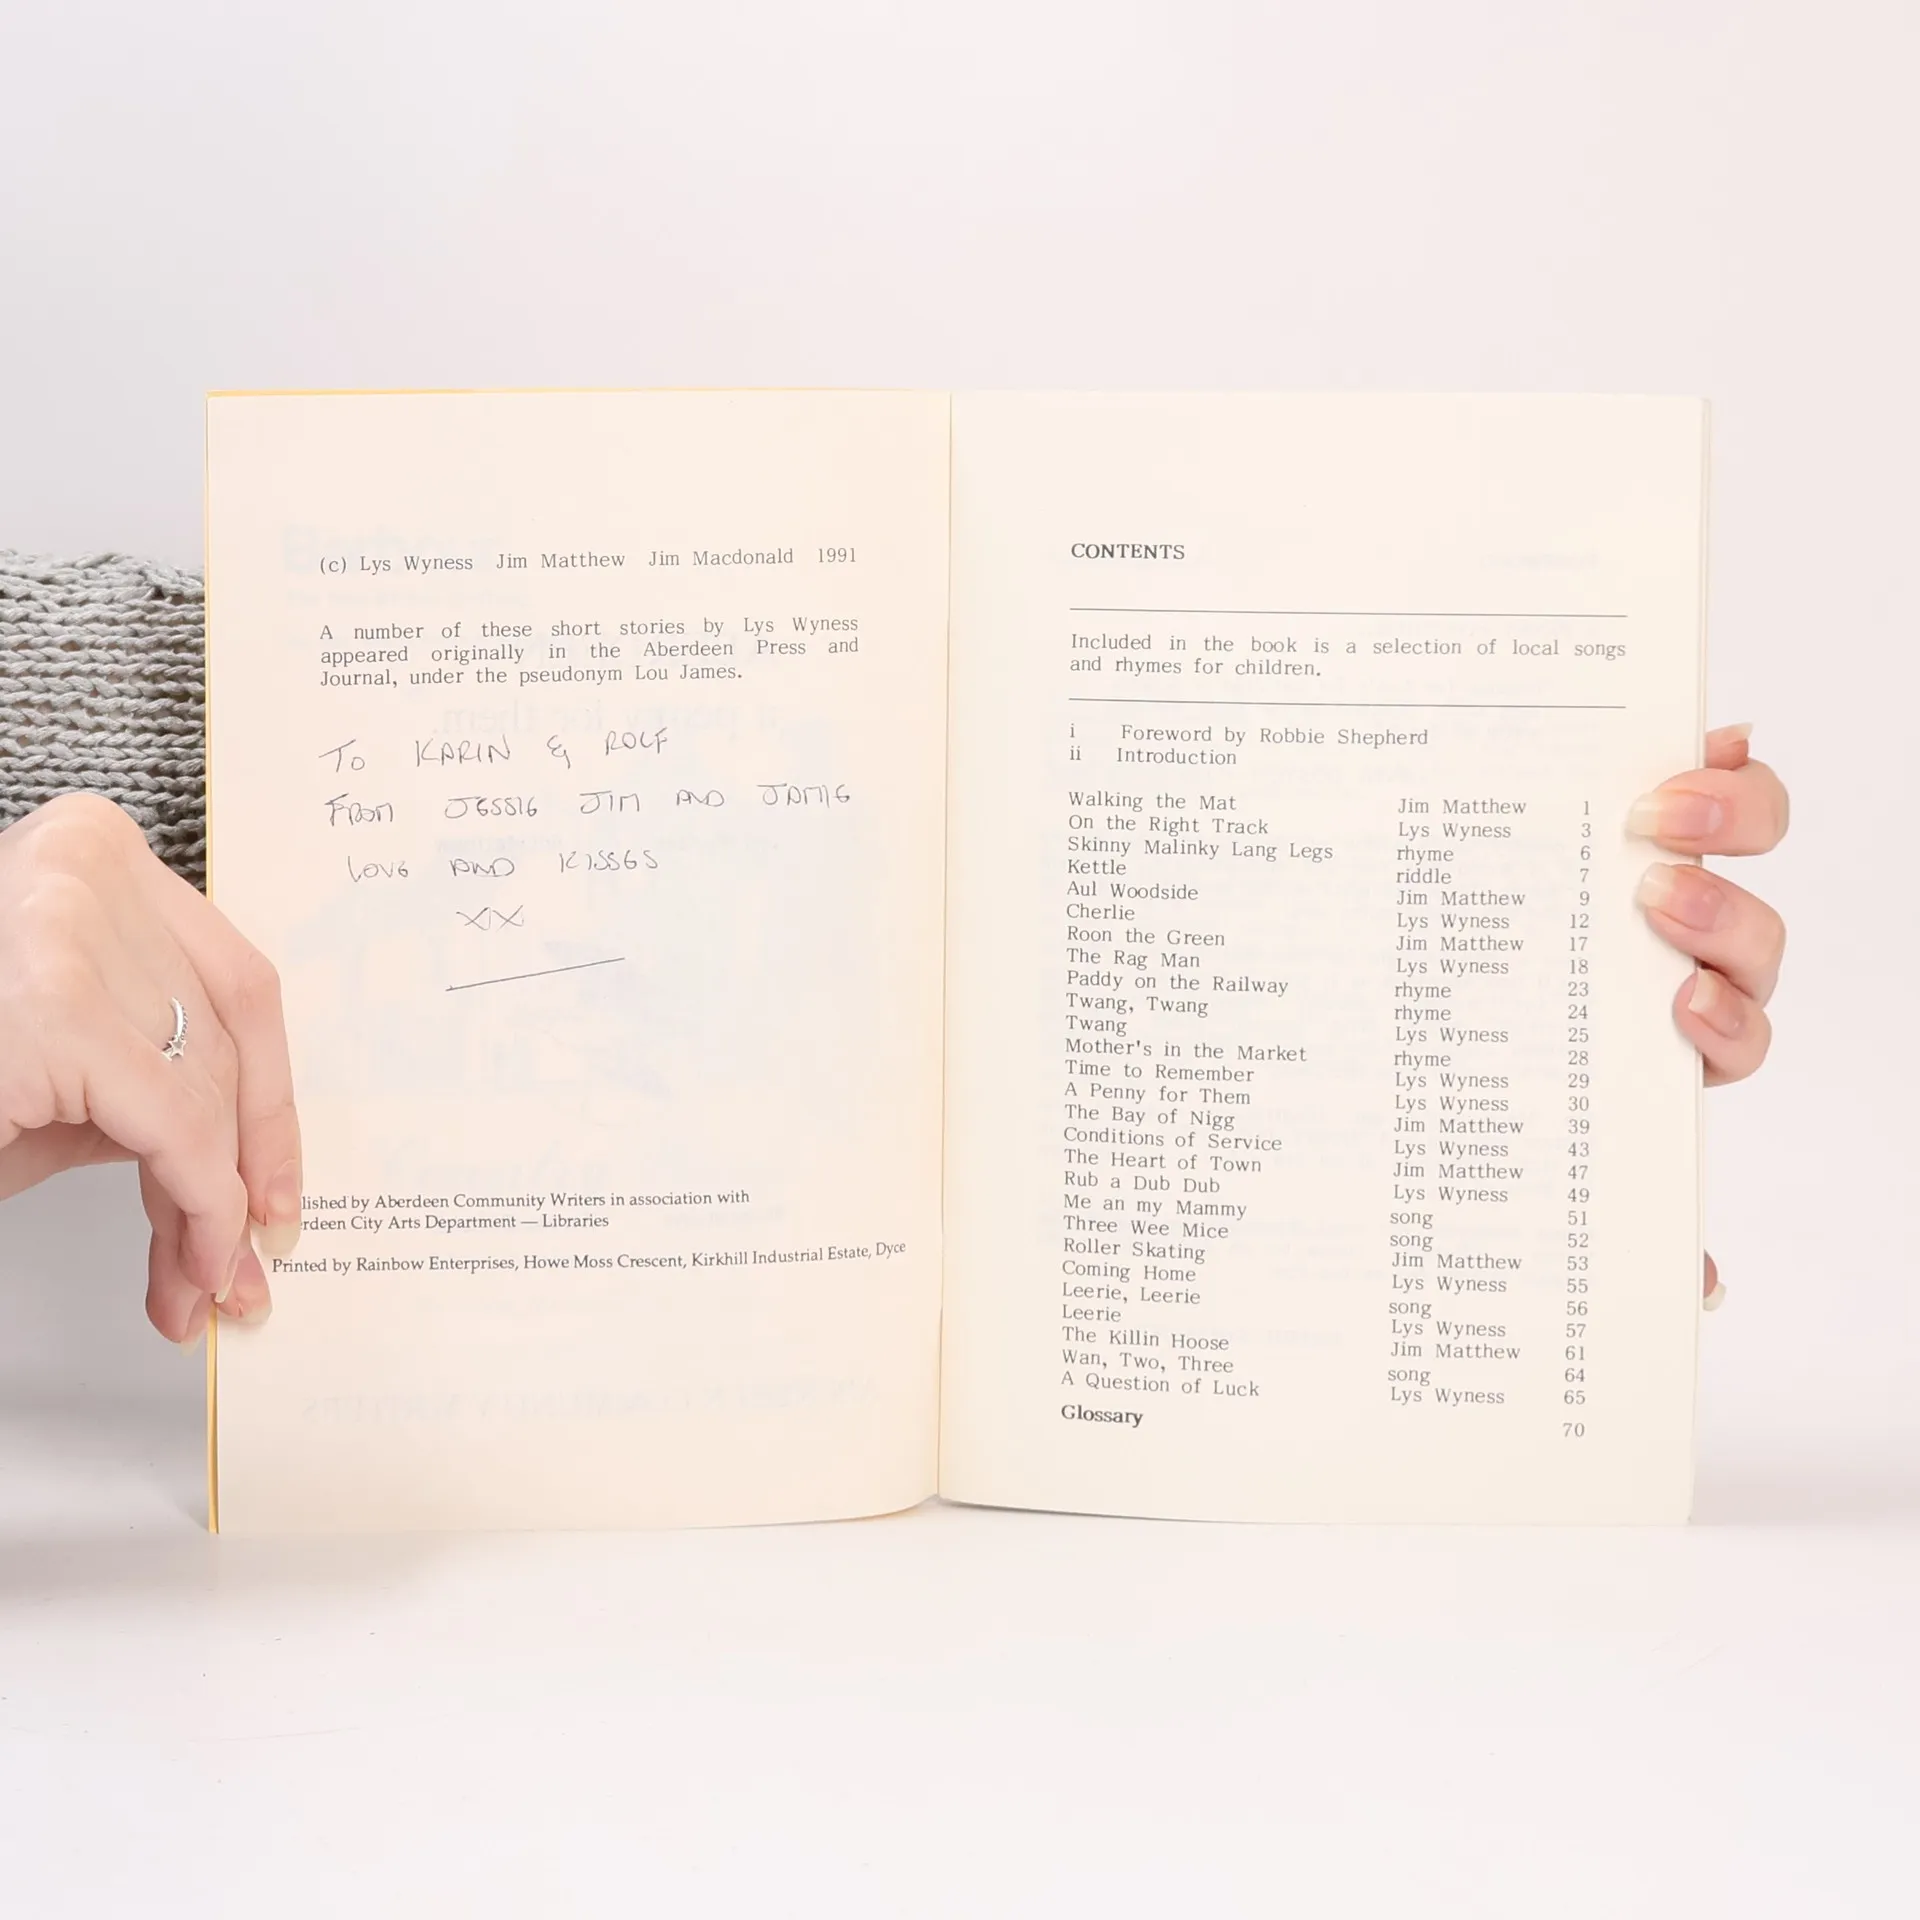 (c) Lys Wyness Jim Matthew Jim Macdonald 1991
A number of these short stories by Lys Wyness
appeared originally in the Aberdeen Press and
Journal, under the pseudonym Lou James.
TO KARIN & ROLF
FROM JESSIE JIM AND JAMIE
LOVE AND KISSES
XX
lished by Aberdeen Community Writers in association with
rdeen City Arts Department — Libraries
Printed by Rainbow Enterprises, Howe Moss Crescent, Kirkhill Industrial Estate, Dyce
CONTENTS
Included in the book is a selection of local songs
and rhymes for children.
i Foreword by Robbie Shepherd
ii Introduction
Walking the Mat Jim Matthew 1
On the Right Track Lys Wyness 3
Skinny Malinky Lang Legs rhyme 6
Kettle riddle 7
Aul Woodside Jim Matthew 9
Cherlie Lys Wyness 12
Roon the Green Jim Matthew 17
The Rag Man Lys Wyness 18
Paddy on the Railway rhyme 23
Twang, Twang rhyme 24
Twang Lys Wyness 25
Mother's in the Market rhyme 28
Time to Remember Lys Wyness 29
A Penny for Them Lys Wyness 30
The Bay of Nigg Jim Matthew 39
Conditions of Service Lys Wyness 43
The Heart of Town Jim Matthew 47
Rub a Dub Dub Lys Wyness 49
Me an my Mammy song 51
Three Wee Mice song 52
Roller Skating Jim Matthew 53
Coming Home Lys Wyness 55
Leerie, Leerie song 56
Leerie Lys Wyness 57
The Killin Hoose Jim Matthew 61
Wan, Two, Three song 64
A Question of Luck Lys Wyness 65
Glossary 70